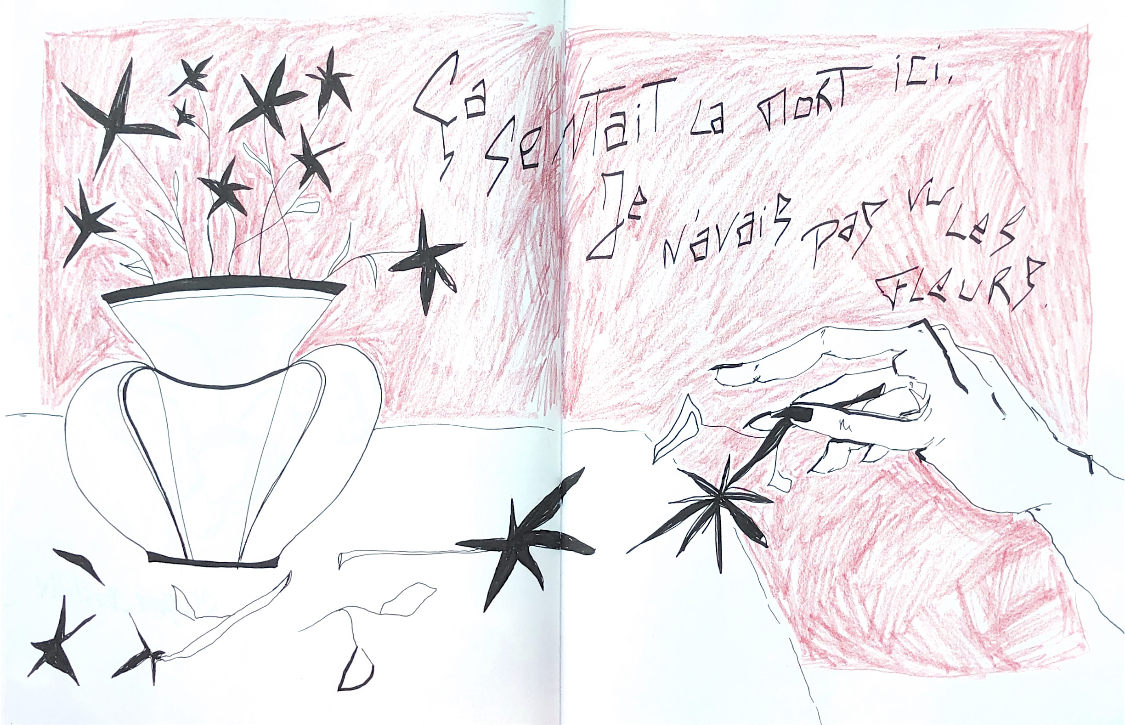 Ça sentait la mort ici.
Je n'avais pas vu les
fleurs.